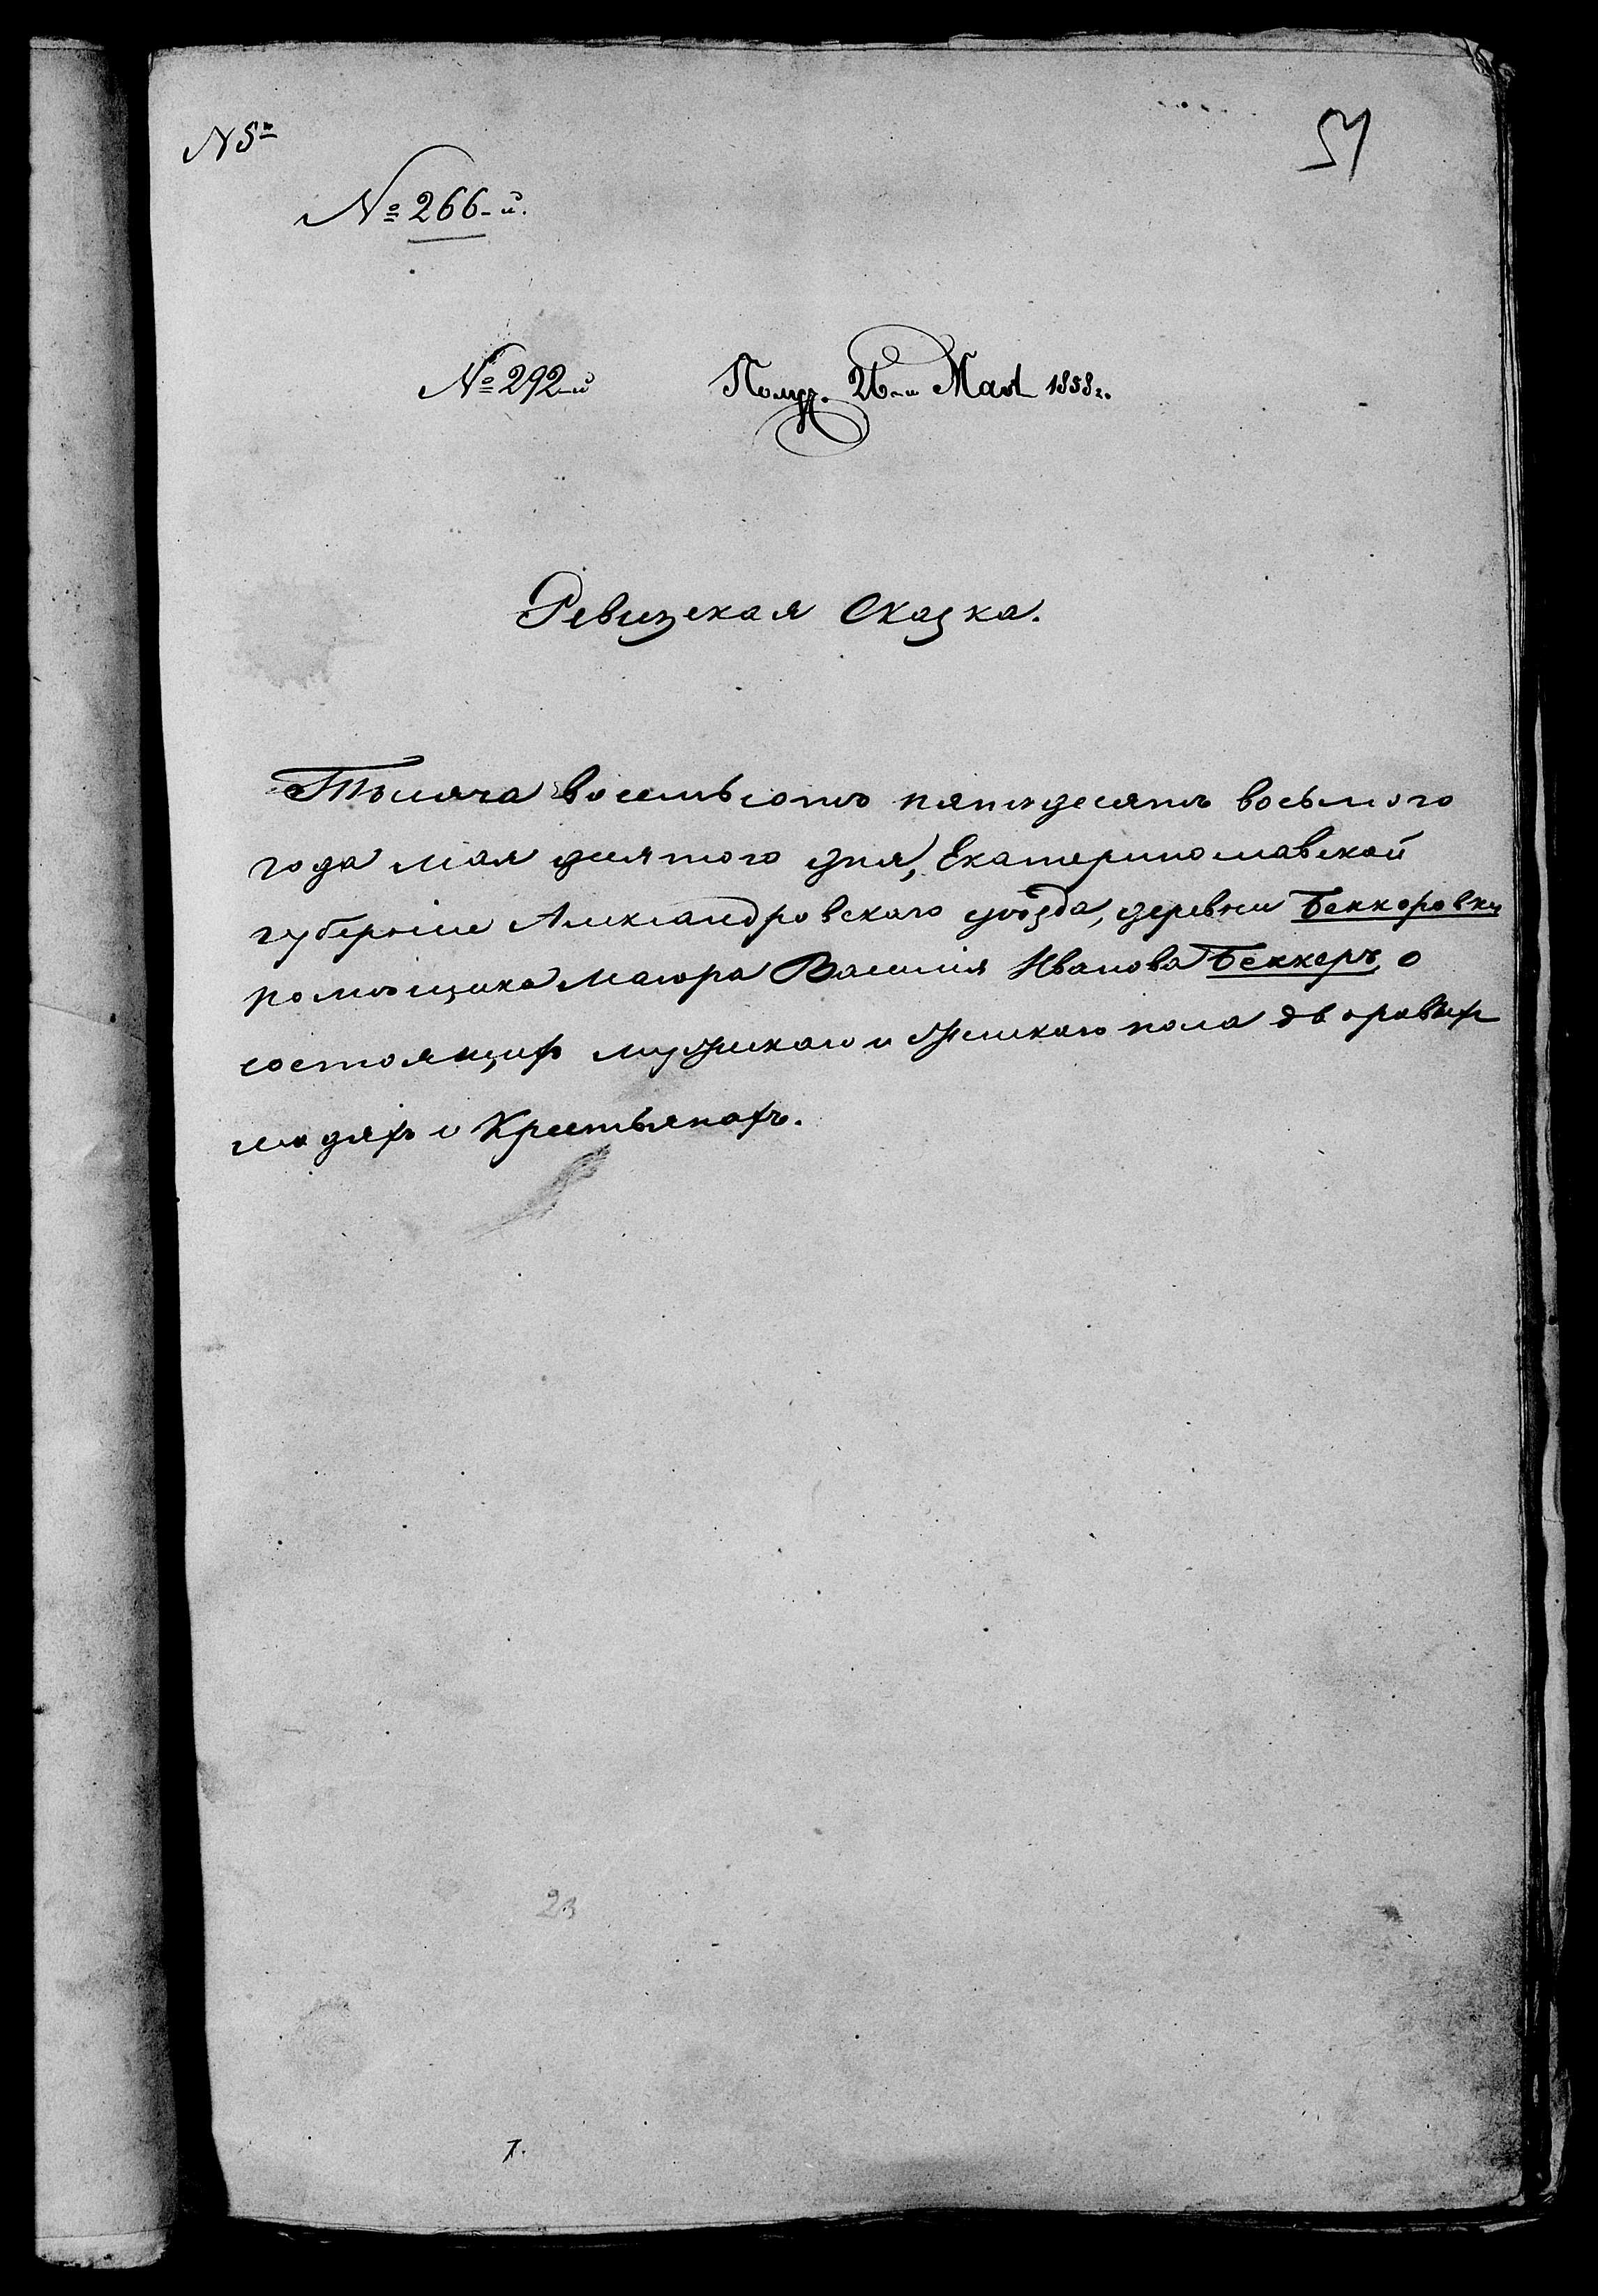 N 5й
51
№ 266-й.
№ 292-й Получ. 26-го Мая 1858 г.
Ревизская Сказка.
Тысяча восемьсотъ пятьдесятъ восьмого
года мая десятого дня, Екатеринославской
губерніи Александровскаго уѣзда, деревни Беккоровки
помѣщика маіора Василія Иванова Беккеръ, о
состоящихъ мужскаго и женскаго пола дворовыхъ
людяхъ и Крестьянахъ.
23